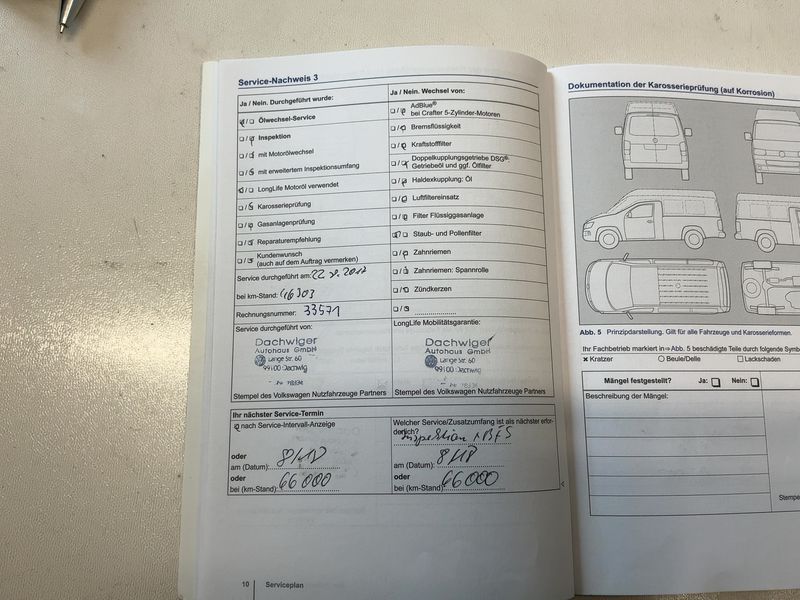 Service-Nachweis 3
Ja / Nein. Durchgeführt wurde:
Ölwechsel-Service
Inspektion
mit Motorölwechsel
mit erweitertem Inspektionsumfang
LongLife Motoröl verwendet
Karosserieprüfung
Gasanlagenprüfung
Reparaturempfehlung
Kundenwunsch
(auch auf dem Auftrag vermerken)
Service durchgeführt am: 22.
bei km-Stand: 46303
Rechnungsnummer: 33571
Service durchgeführt von:
Dachwiger
Autohaus GmbH
Lange Str. 60
99100 Dachwig
Stempel des Volkswagen Nutzfahrzeuge Partners
Ja / Nein. Wechsel von:
AdBlue®
bei Crafter 5-Zylinder-Motoren
Bremsflüssigkeit
Kraftstofffilter
Doppelkupplungsgetriebe DSG®:
Getriebeöl und ggf. Ölfilter
Haldexkupplung: Öl
Luftfiltereinsatz
Filter Flüssiggasanlage
Staub- und Pollenfilter
Zahnriemen
Zahnriemen: Spannrolle
Zündkerzen
LongLife Mobilitätsgarantie:
Dachwiger
Autohaus GmbH
Lange Str. 60
99100 Dachwig
Stempel des Volkswagen Nutzfahrzeuge Partners
Ihr nächster Service-Termin
nach Service-Intervall-Anzeige
oder
am (Datum): 8/18
oder
bei (km-Stand): 66000
Welcher Service/Zusatzumfang ist als nächster erfor-
derlich?
Inspektion + BFS
am (Datum): 8/18
oder
bei (km-Stand): 66000
10 Serviceplan
Dokumentation der Karosserieprüfung (auf Korrosion)
Abb. 5 Prinzipdarstellung. Gilt für alle Fahrzeuge und Karosserieformen.
Ihr Fachbetrieb markiert in ⇒ Abb. 5 beschädigte Teile durch folgende
Kratzer Beule/Delle Lackschaden
Mängel festgestellt? Ja: Nein:
Beschreibung der Mängel: